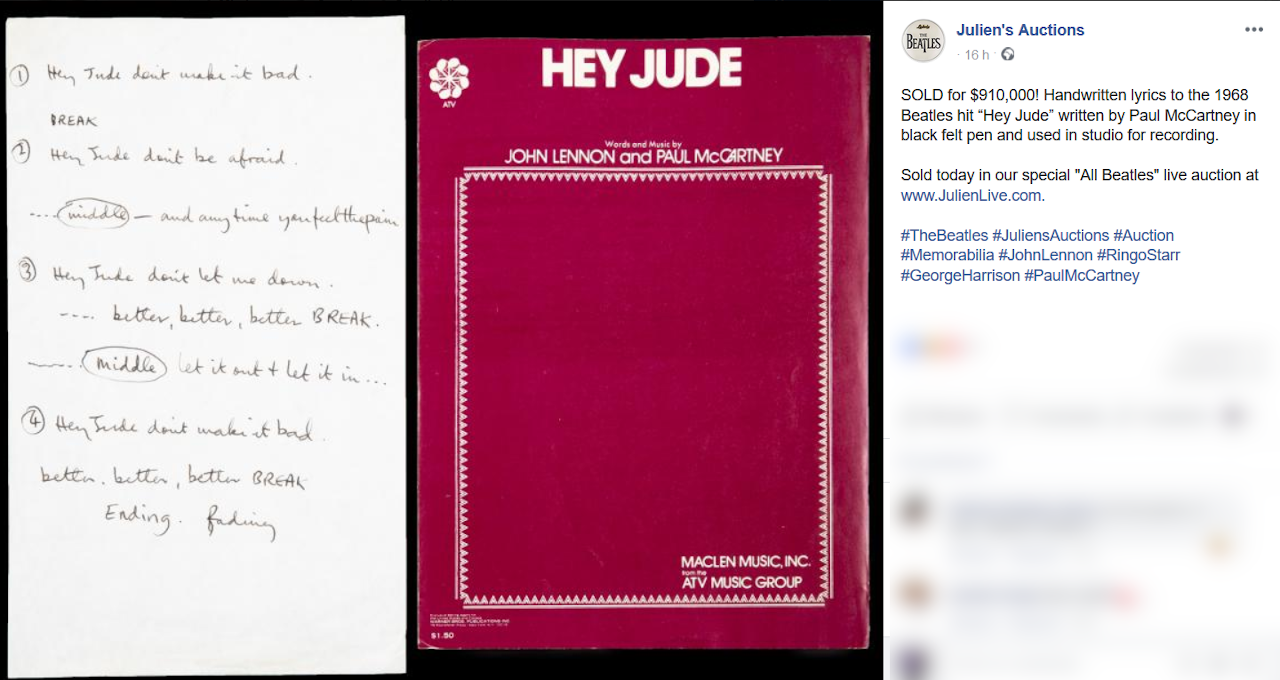 ① Hey Jude don't make it bad.
BREAK
② Hey Jude don't be afraid.
---- middle — and anytime you feel the pain
③ Hey Jude don't let me down.
---- better, better, better BREAK.
middle let it out + let it in...
④ Hey Jude don't make it bad.
better. better, better BREAK
Ending. fading
HEY JUDE
ATV
Words and Music by
JOHN LENNON and PAUL McCARTNEY
MACLEN MUSIC, INC.
from the
ATV MUSIC GROUP
WARNER BROS. PUBLICATIONS INC
$1.50
THE
BEATLES
Julien's Auctions
· 16 h ·
SOLD for $910,000! Handwritten lyrics to the 1968
Beatles hit “Hey Jude” written by Paul McCartney in
black felt pen and used in studio for recording.
Sold today in our special "All Beatles" live auction at
www.JulienLive.com.
#TheBeatles #JuliensAuctions #Auction
#Memorabilia #JohnLennon #RingoStarr
#GeorgeHarrison #PaulMcCartney